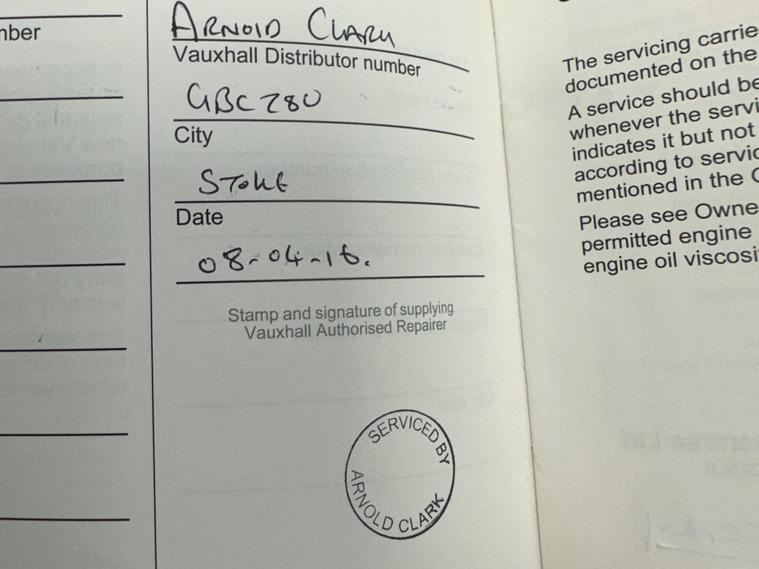 mber
ARNOLD CLARK
Vauxhall Distributor number
GBC280
City
STOKE
Date
08-04-16.
Stamp and signature of supplying
Vauxhall Authorised Repairer
SERVICED BY
ARNOLD CLARK
The servicing carrie
documented on the
A service should be
whenever the servi
indicates it but not
according to servic
mentioned in the O
Please see Owne
permitted engine
engine oil viscosi